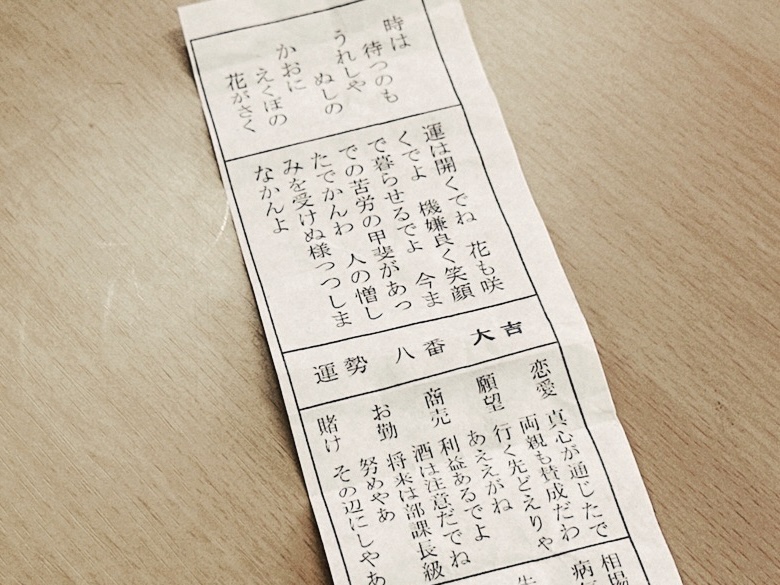 時は
待つのも
うれしや
ぬしの
かおに
えくぼの
花がさく
運は開くでね　花も咲
くでよ　機嫌良く笑顔
で暮らせるでよ　今ま
での苦労の甲斐があっ
たでかんわ　人の憎し
みを受けぬ様つつしま
なかんよ
運勢　八番　大吉
恋愛　真心が通じたで
両親も賛成だわ
願望　行く先どえりゃ
あええがね
商売　利益あるでよ
酒は注意だでね
お勤　将来は部課長級
努めやあ
賭け　その辺にしやあ
相場
病